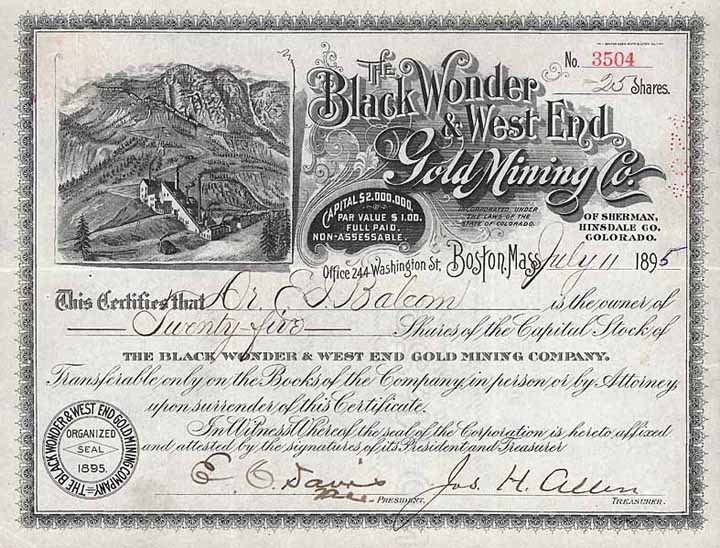 No. 3504
25 Shares.
THE
Black Wonder
& West End
Gold Mining Co.
CAPITAL $2,000,000.
PAR VALUE $1.00.
FULL PAID.
NON-ASSESSABLE.
INCORPORATED UNDER
THE LAWS OF THE
STATE OF COLORADO.
OF SHERMAN,
HINSDALE CO.
COLORADO.
Office 244 Washington St., Boston, Mass. July 11 1895
This Certifies that Dr. E. S. Balcom is the owner of
Twenty-five Shares of the Capital Stock of
THE BLACK WONDER & WEST END GOLD MINING COMPANY.
Transferable only on the Books of the Company, in person or by Attorney,
upon surrender of this Certificate.
In Witness Whereof the seal of the Corporation is hereto affixed
and attested by the signatures of its President and Treasurer
THE BLACK WONDER & WEST END GOLD MINING COMPANY
ORGANIZED
SEAL
1895.
E. C. Davis
PRESIDENT.
Jos. H. Allen
TREASURER.